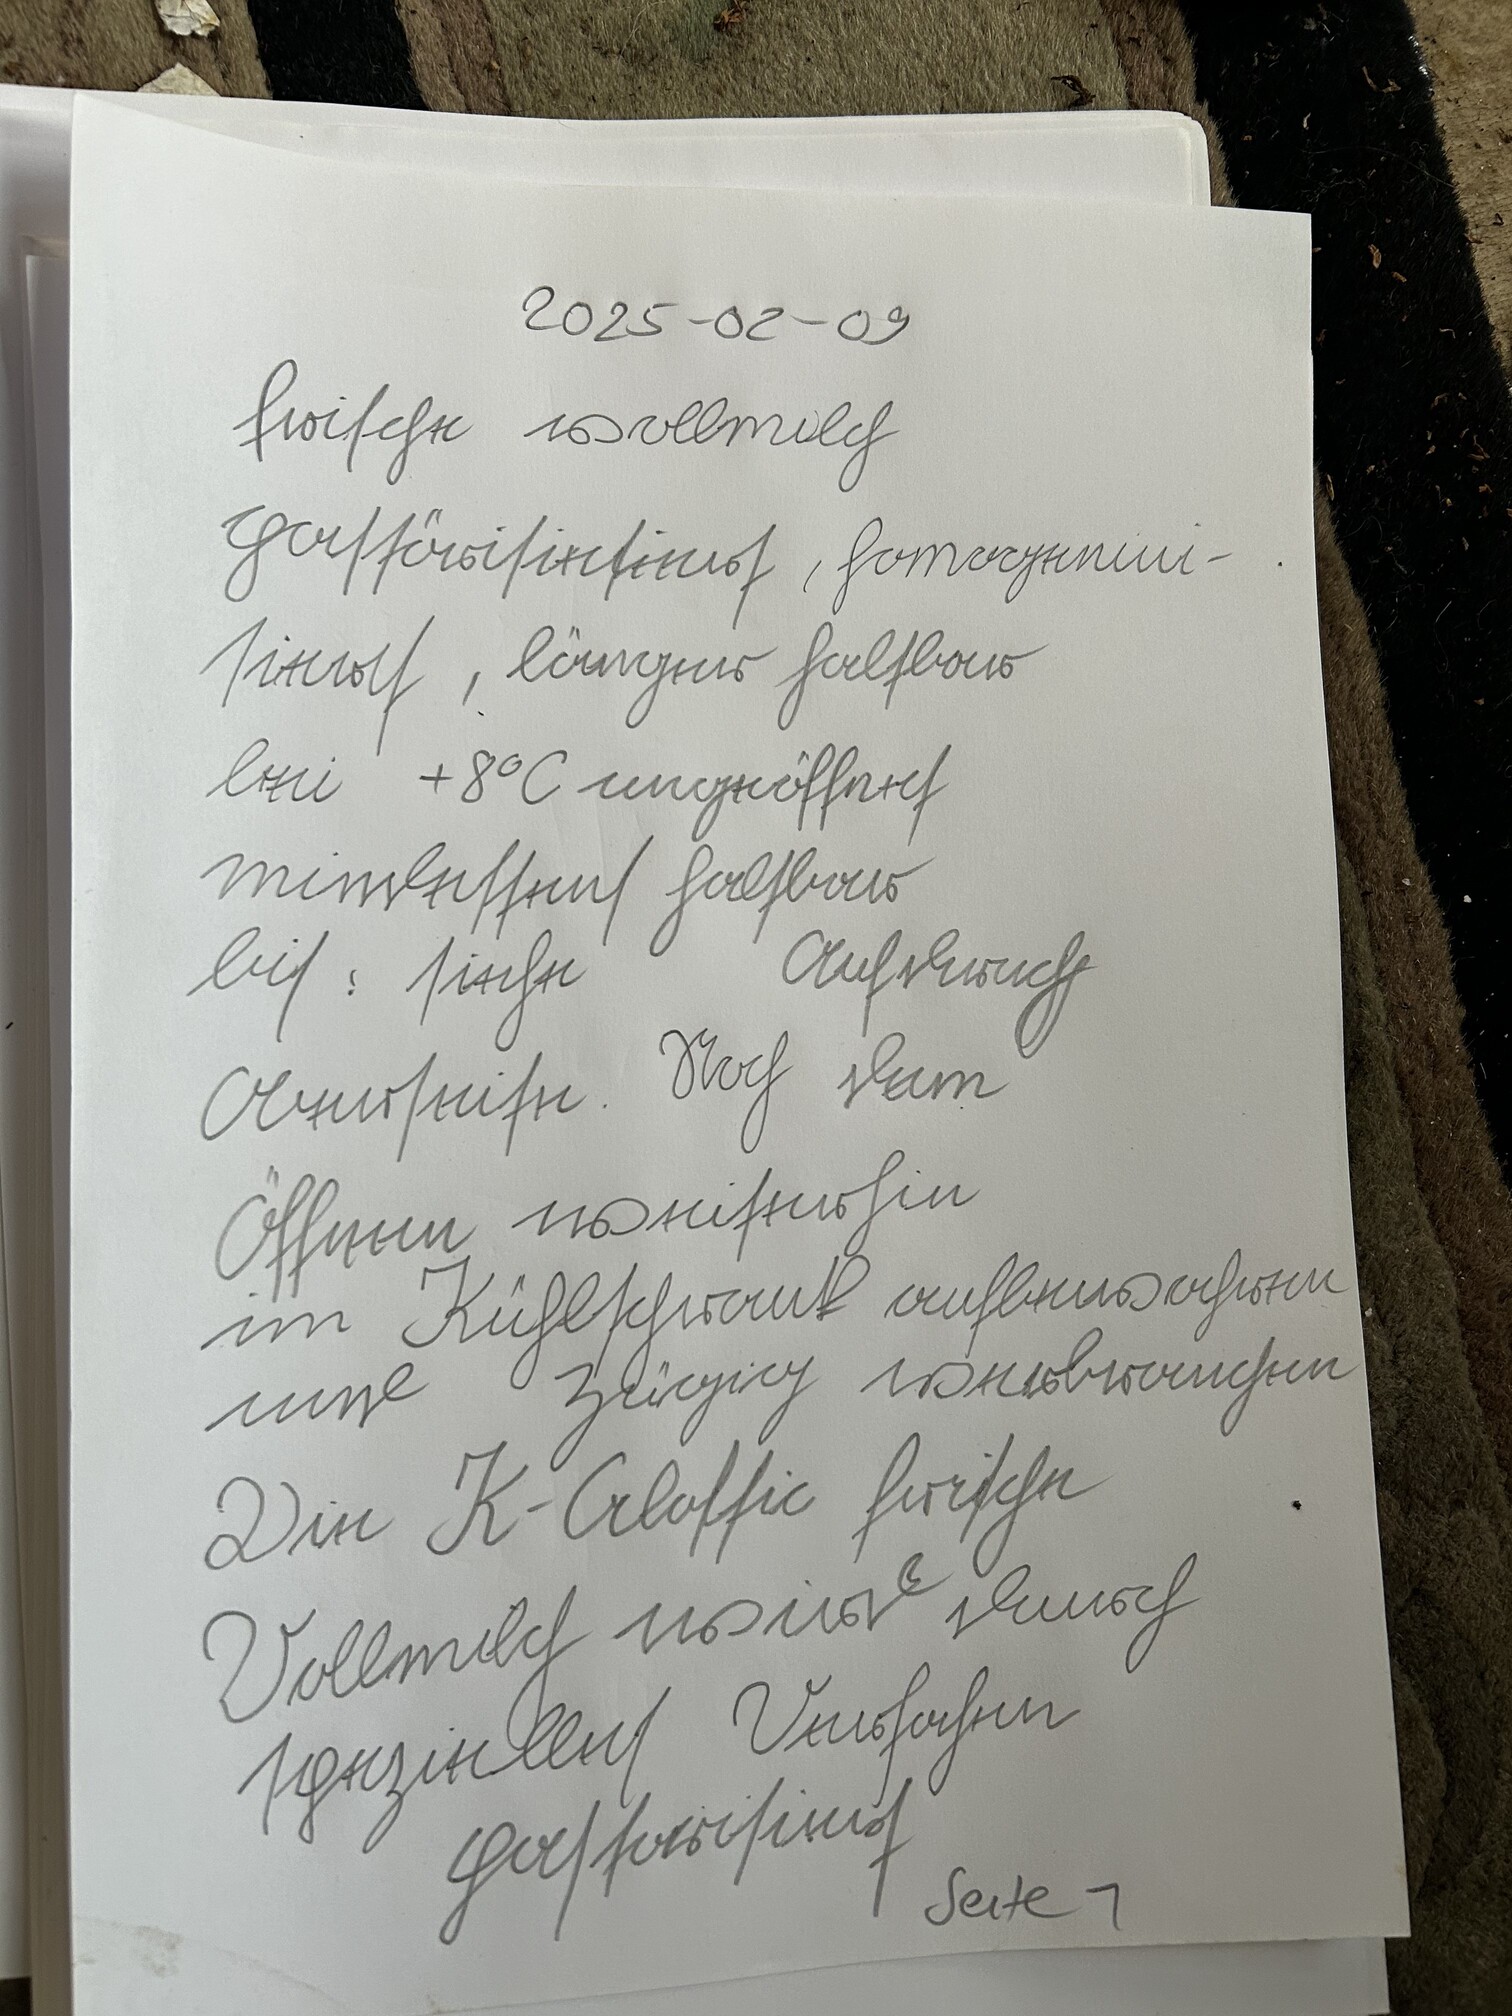 2025-02-09
frische vollmilch
Pastörisieiert, homogeni-
siert, länger haltbar
bei +8°C ungeöffnet
mindestens haltbar
bis: siehe Aufdruck
Oberseite. Nach dem
Öffnen weiterhin
im Kühlschrank aufbewahren
und zügig verbrauchen
Die K-Classic frische
Vollmilch wird durch
spezielles Verfahren
pastorisiert
Seite 1